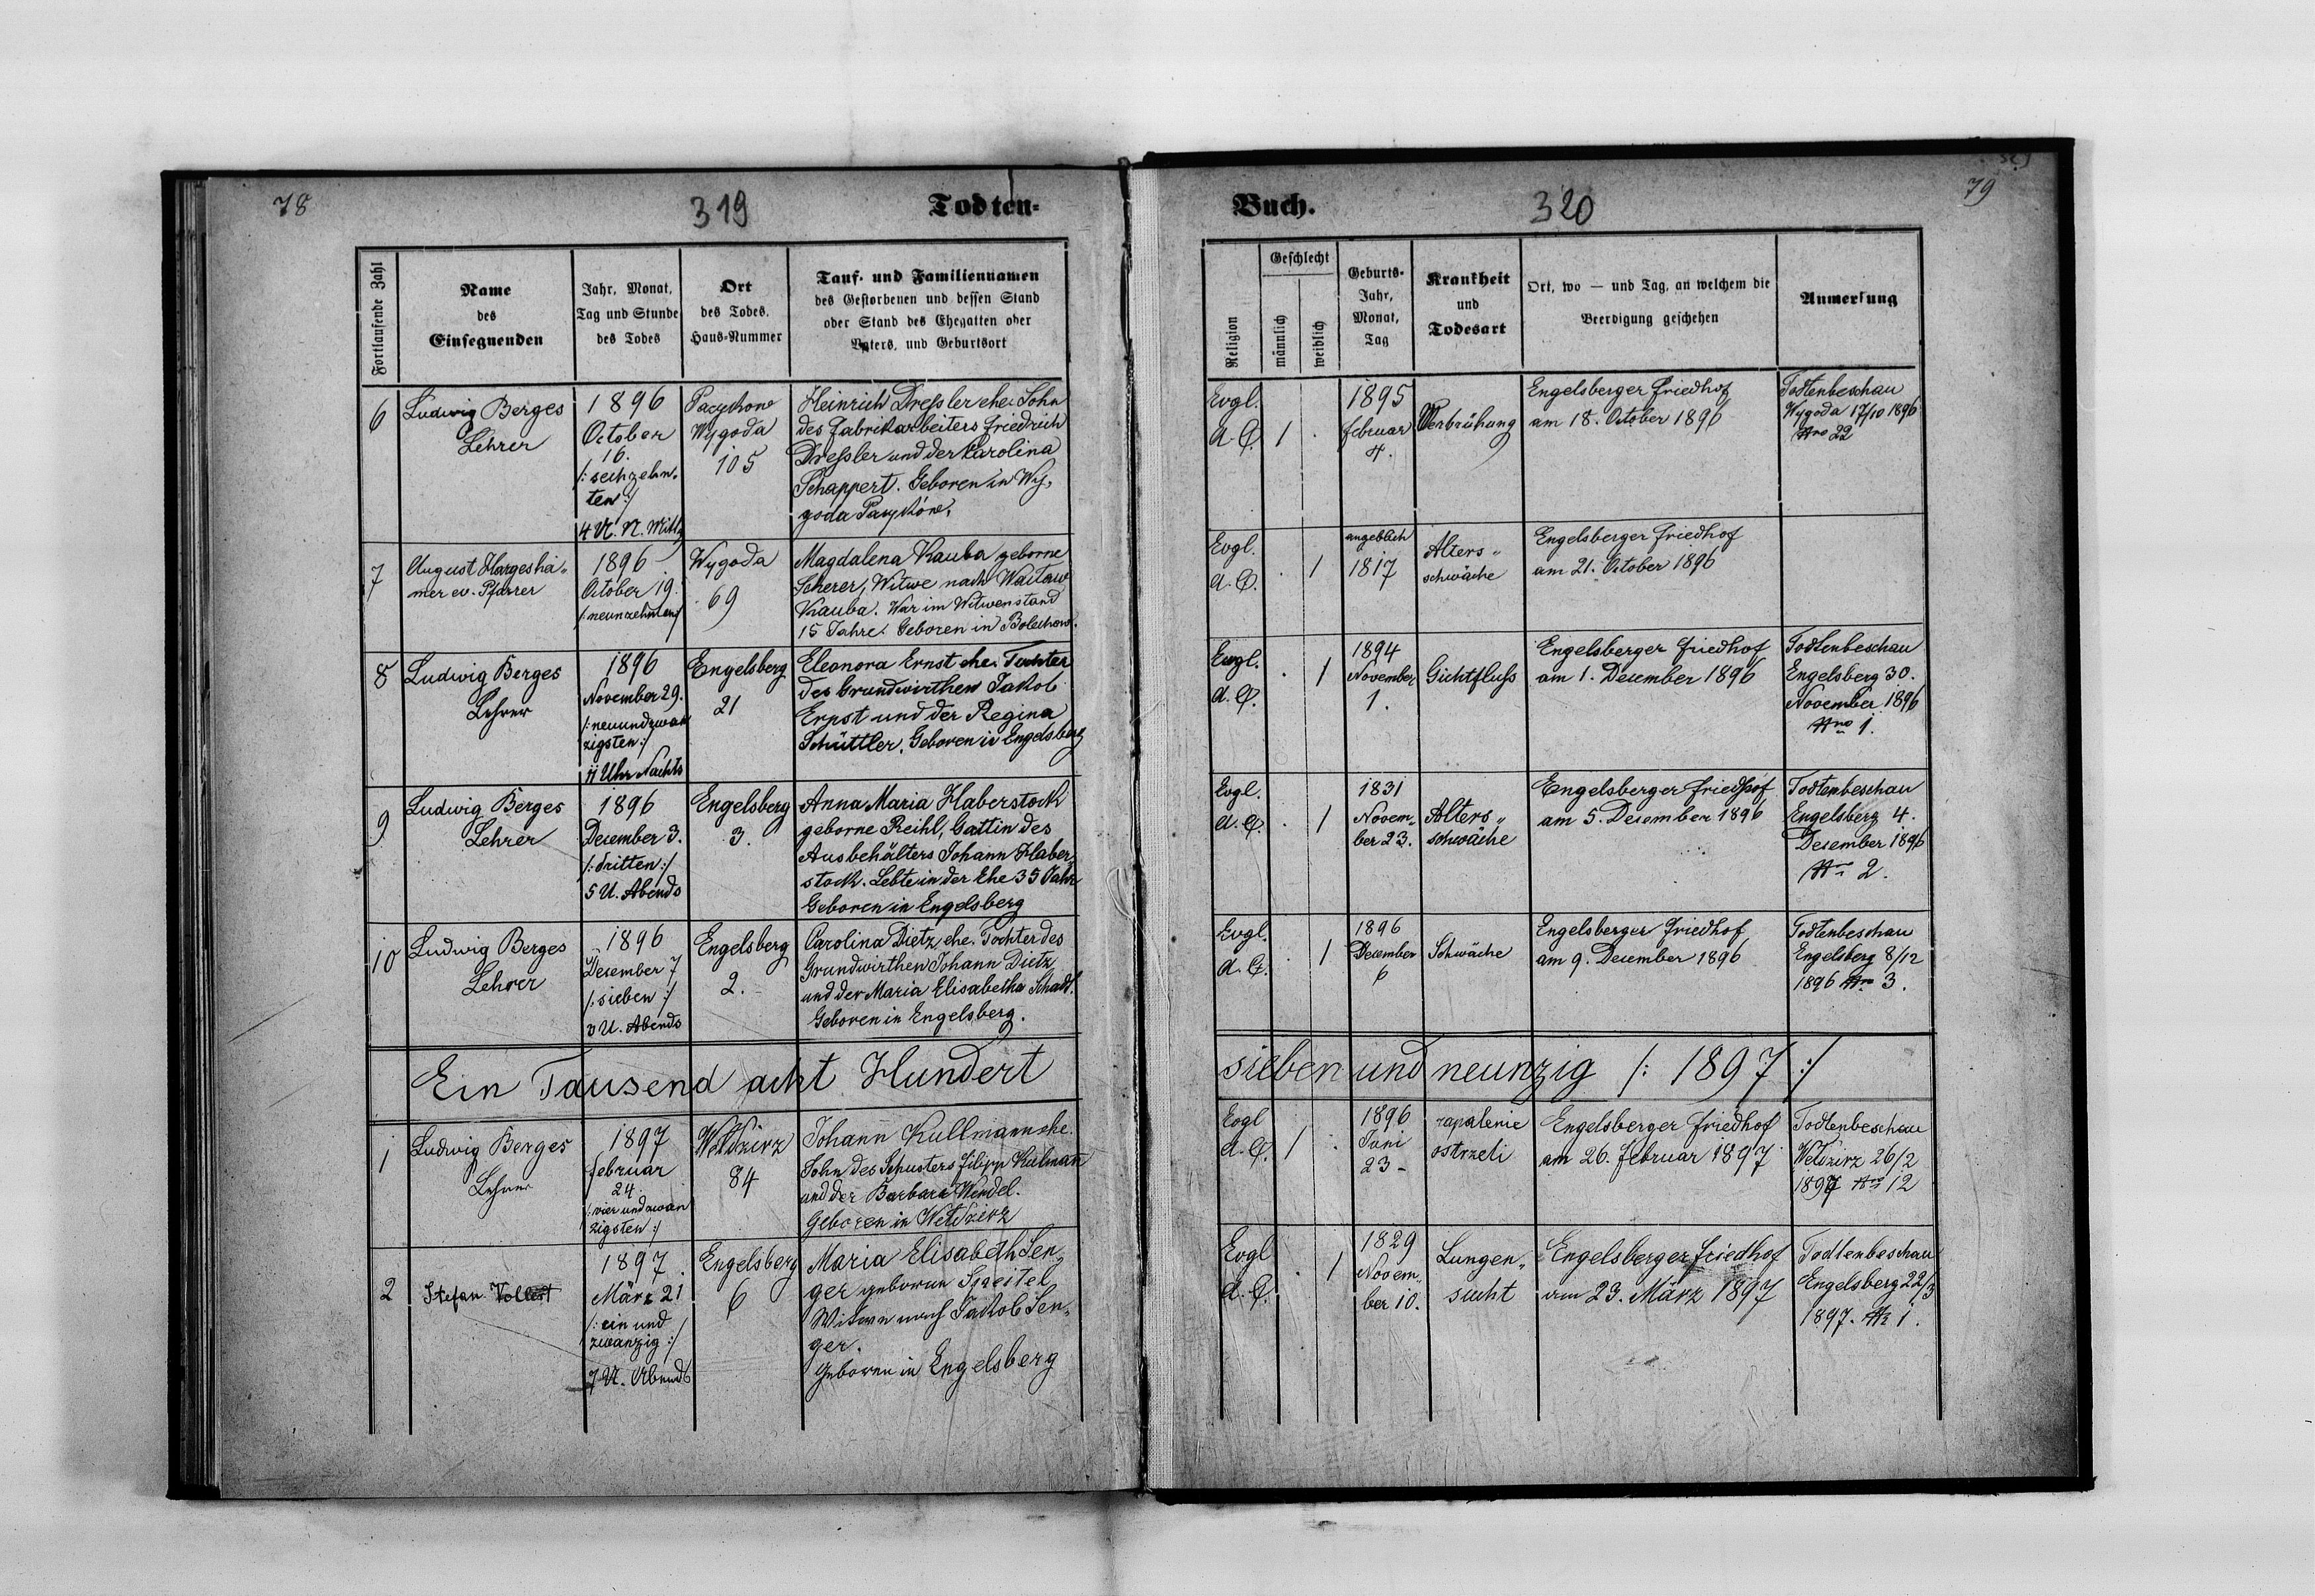 78
319
Todten-
Fortlaufende Zahl
Name
des
Einsegnenden
Jahr, Monat,
Tag und Stunde
des Todes
Ort
des Todes,
Haus-Nummer
Tauf- und Familiennamen
des Gestorbenen und dessen Stand
oder Stand des Ehegatten oder
Vaters, und Geburtsort
6
Ludwig Berges
Lehrer
1896
October
16.
/: sechzehn-
ten :/
4 U. N. Mittg
Pacykow
Wygoda
105
Heinrich Dressler ehe. Sohn
des Fabrikarbeiters Friedrich
Dressler und der Karolina
Schappert. Geboren in Wy-
goda Pacyków.
7
August Hargeshei-
mer ev. Pfarrer
1896
October 19.
/: neunzehnten :/
Wygoda
69
Magdalena Kauba geborne
Scherer, Witwe nach
Kauba. War im Witwenstand
15 Jahre. Geboren in Bolechow.
8
Ludwig Berges
Lehrer
1896
November 29.
/: neunundzwan
zigsten :/
11 Uhr Nachts
Engelsberg
21
Eleonora Ernst ehe. Tochter
des Grundwirthen Jakob
Ernst und der Regina
Schüttler. Geboren in Engelsberg
9
Ludwig Berges
Lehrer
1896
Dezember 3.
/: dritten :/
5 U. Abends
Engelsberg
3.
Anna Maria Haberstock
geborne Reihl, Gattin des
Ausbehälters Johann Haber-
stock. Lebte in der Ehe 35 Jahre
Geboren in Engelsberg
10
Ludwig Berges
Lehrer
1896
Dezember 7
/: sieben :/
U. Abends
Engelsberg
2.
Carolina Dietz, ehe. Tochter des
Grundwirthen Johann Dietz
und der Maria Elisabetha
Geboren in Engelsberg.
Ein Tausend acht Hundert
1
Ludwig Berges
Lehrer
1897
Februar
24.
/: vier und zwan
zigsten :/
Weldzirz
84
Johann Kullmann ehe.
Sohn des Schusters Filipp Kulman
und der Barbara Wendel.
Geboren in Weldzirz
2
Stefan Vollert
1897
März 21
/: ein und
zwanzig :/
7 U. Abends
Engelsberg
6
Maria Elisabeth Sen-
ger geborene Speitel
Witwe nach Jakob Sen-
ger.
Geboren in Engelsberg
Buch.
320
79
Religion
Geschlecht
männlich
weiblich
Geburts-
Jahr,
Monat,
Tag
Krankheit
und
Todesart
Ort, wo — und Tag, an welchem die
Beerdigung geschehen
Anmerkung
Evgl.
A. C.
1
.
1895
Februar
4.
Verbrühung
Engelsberger Friedhof
am 18. October 1896
Todtenbeschau
Wygoda 17/10 1896
Nro 22
Evgl.
A. C.
.
1
angeblich
1817
Alters-
schwäche
Engelsberger Friedhof
am 21. October 1896
Evgl.
A. C.
.
1
1894
November
1.
Gichtfluss
Engelsberger Friedhof
am 1. Dezember 1896
Todtenbeschau
Engelsberg 30.
November 1896
Nro 1.
Evgl.
A. C.
.
1
1831
Novem-
ber 23.
Alters-
schwäche
Engelsberger Friedhof
am 5. Dezember 1896
Todtenbeschau
Engelsberg 4.
Dezember 1896
Nro 2.
Evgl.
A. C.
.
1
1896
Dezember
6
Schwäche
Engelsberger Friedhof
am 9. Dezember 1896
Todtenbeschau
Engelsberg 8/12
1896 Nro 3.
sieben und neunzig /: 1897 :/
Evgl
A. C.
1
.
1896
Juni
23-
zapalenie
ostrzeli
Engelsberger Friedhof
am 26. Februar 1897
Todtenbeschau
Weldzirz 26/2
1897 Nro 12
Evgl
A. C.
.
1
1829
Novem-
ber 10.
Lungen-
sucht
Engelsberger Friedhof
am 23. März 1897
Todtenbeschau
Engelsberg 22/3
1897. Nr 1.